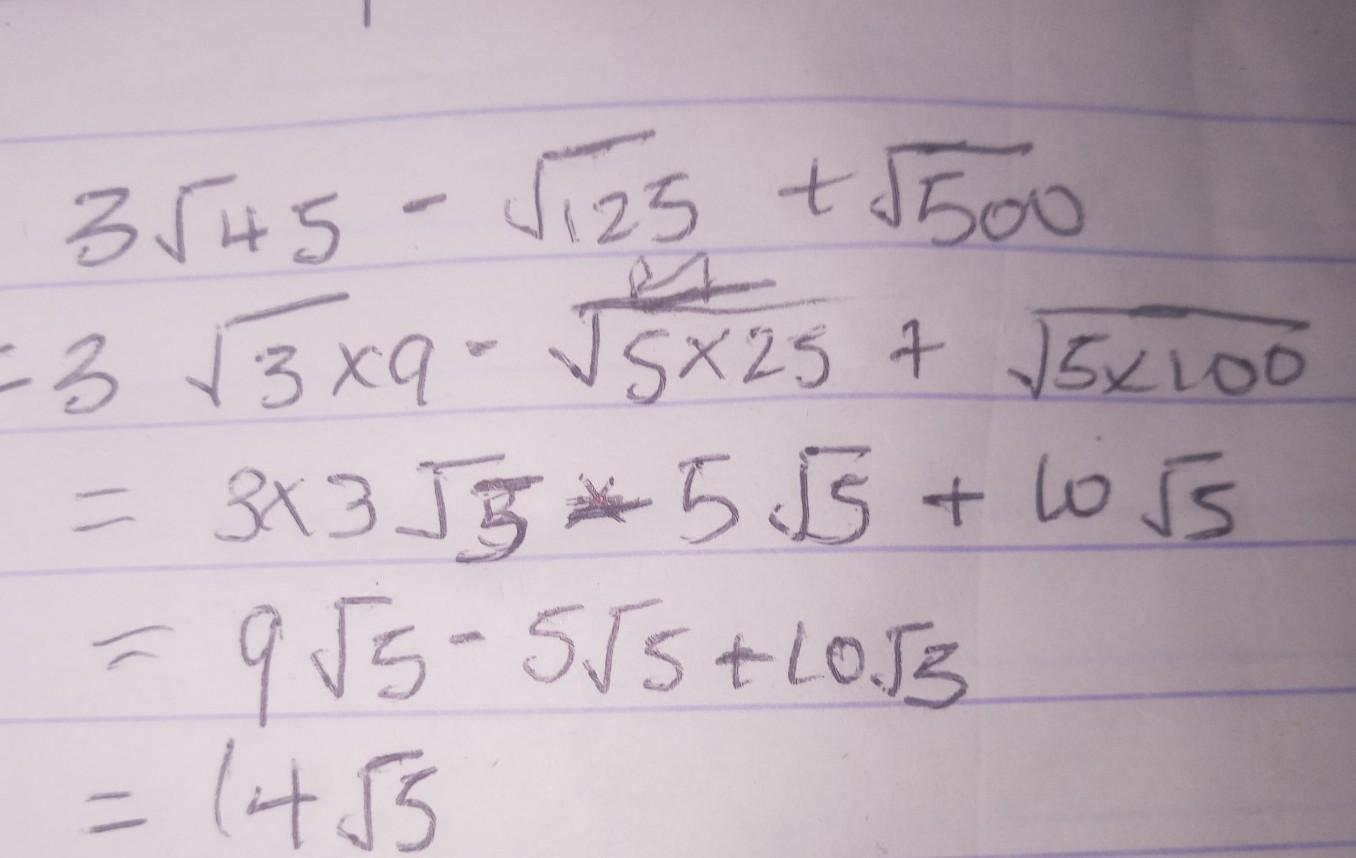 3√45 - √125 + √500
= 3 √3×9 - √5×25 + √5×100
= 3×3√5 - 5√5 + 10√5
= 9√5 - 5√5 + 10√5
= 14√5